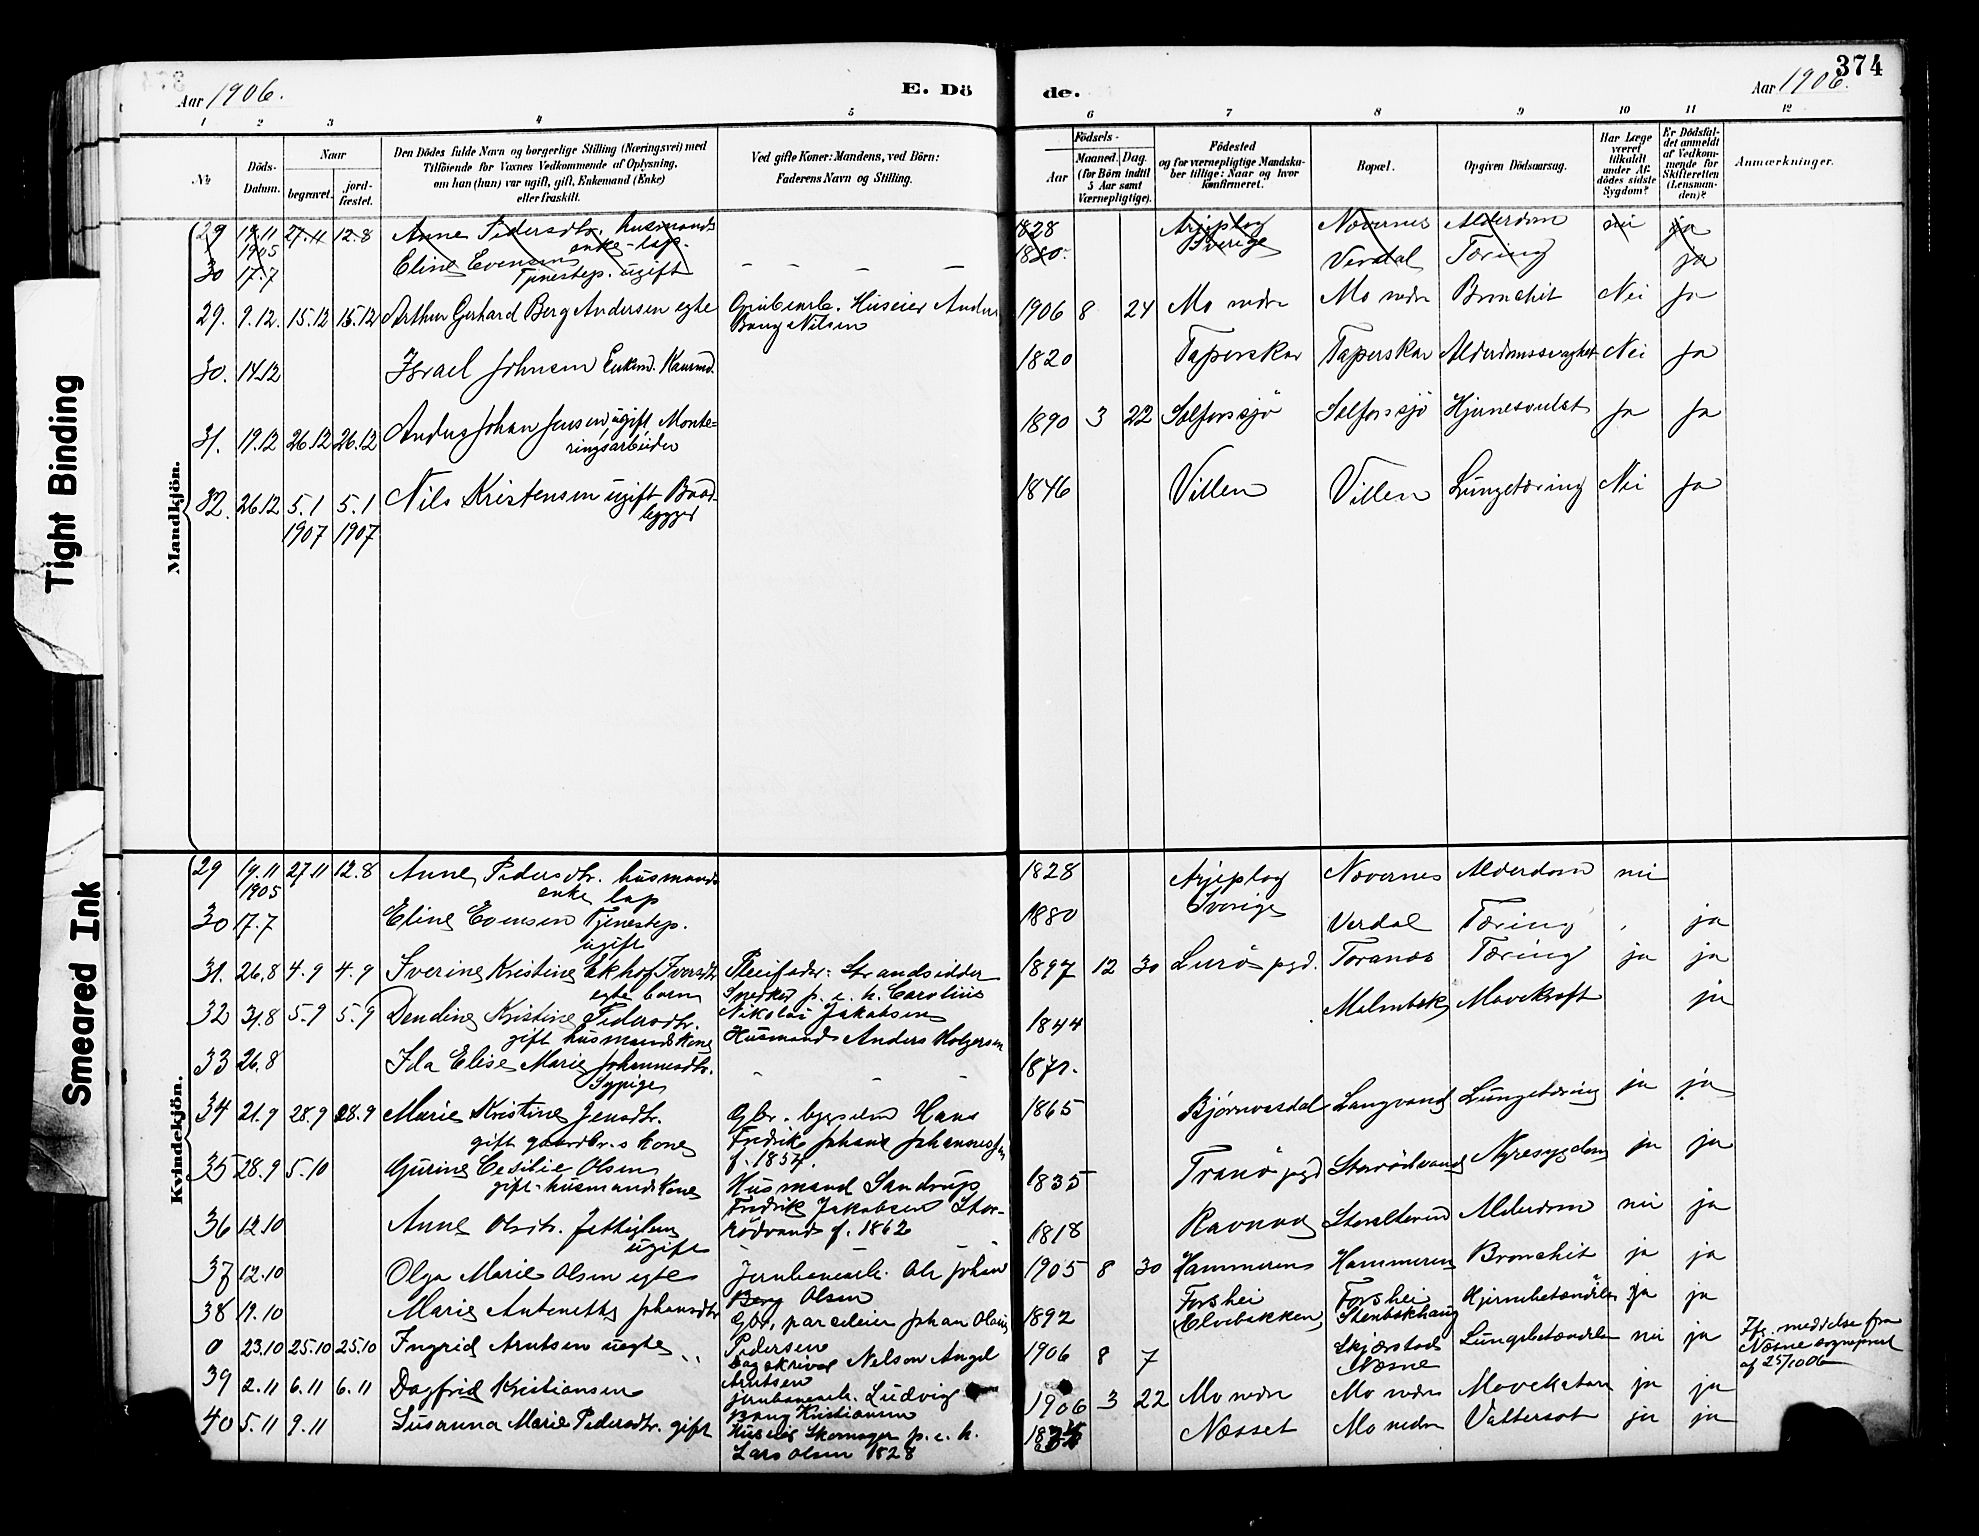 374
Aar 1906.
E. Dö
de.
Aar 1906.
1 2 3 4 5 6 7 8 9 10 11 12
No
Döds-Datum.
Naar
begravet.
jord-fæstet.
Den Dödes fulde Navn og borgerlige Stilling (Næringsvei) med
Tilföiende for Voxnes Vedkommende af Oplysning,
om han (hun) var ugift, gift, Enkemand (Enke)
eller fraskilt.
Ved gifte Koner: Mandens, ved Börn:
Faderens Navn og Stilling.
Födsels-
Aar
Maaned. Dag.
(for Börn indtil
5 Aar samt
Værnepligtige).
Födested
og for værnepligtige Mandska-
ber tillige: Naar og hvor
konfirmeret.
Bopæl.
Opgiven Dödsaarsag.
Har Læge
været
tilkaldt
under Af-
dödes sidste
Sygdom?
Er Dödsfal-
det anmeldt
af Vedkom-
mende for
Skifteretten
(Lensman-
den)?
Anmærkninger.
Tight Binding
Smeared Ink
Mandkjön.
29 19.11 27.11 12.8 Anne Pedersdtr. husmands 1828 Arjeplog Nævernes Alderdom nei ja
1905 enke - lap. Sverige
30 17.7 Eline Evensen 1880. Verdal Tæring ja
Tjenestep. ugift
29. 9.12. 15.12 15.12 Arthur Gerhard Berg Andersen egte Huseier Anders 1906 8 24 Mo nedre Mo nedre Bronchit Nei Ja
Nilsen
30. 14.12 Israel Johnsen Enkem. 1820 Taperskar Taperskar Alderdomssvaghet Nei Ja
31. 19.12 26.12 26.12 Anders Johan Jensen, ugift Monte- 1890 3 22 Selforssjö Selforssjö Hjernesvulst Ja Ja
ringsarbeider
32. 26.12 5.1 5.1 Nils Kristensen ugift Baad- 1846 Villen Villen Lungetæring Nei Ja
1907 1907 bygger
Kvindekjön.
29 19.11 27.11 12.8 Anne Pedersdtr. husmands 1828 Arjeplog Nævernes Alderdom nei
1905 enke lap Sverige
30 17.7 Eline Evensen Tjenestep. 1880 Verdal Tæring ja
ugift
31. 26.8 4.9 4.9 Iverine Kristine Ekhof Iversdtr. Pleiefader: Strandsidder 1897 12 30 Lurö pgd. Toranes Tæring ja ja
egte barn Snedker p.e.h. Carolius
32 31.8 5.9 5.9 Dendine Kristine Pedersdtr. Nikolai Jakobsen 1844 Malmbæk Mavekræft ja
gift husmandskone Husmand Anders Holgersen
33 26.8 Ida Elise Marie Johannesdtr. 187
Sypige
34 21.9 28.9 28.9 Marie Kristine Jensdtr. Gbr. Hans 1865 Bjørnærsdal Langvand Lungetæring ja ja
gift gaardbr.s kone Fredrik Johan Johannesen
f. 1854.
35 28.9 5.10 Gurine Cesilie Olsen Husmand Sandrup 1835 Tranö pgd Storrödvand Nyresygdom ja ja
gift husmandskone Fredrik Jakobsen Stor-
36 12.10 Anne Olsdtr. rödvand f. 1862 1818 Ravnaa Alderdom nei ja
ugift
37 12.10 Olga Marie Olsen egte Jernbanearb. Ole Johan 1905 8 30 Hammeren Hammeren Bronchit ja ja
Berg Olsen
38 19.10 Marie Antonette Johansdtr Gbr, parceleier Johan Olaus 1892 Forshei Forshei Hjernebetændelse ja ja
Pedersen Elvebakken Stenbækhaug
0 23.10 25.10 25.10 Ingrid Arntsen uegte Dagskriver Nelson Angel 1906 8 7 Skjærstad Lungebetændelse nei ja Ifr. meddelse fra
Arntsen Næsne Næsne sogneprest
af 25/10 06
39 2.11 6.11 6.11 Dagfrid Kristiansen Jernbanearb. Ludvig 1906 3 22 Mo nedre Mo nedre Mavekatarr ja ja
Kristiansen
40 5.11 9.11 Susanna Marie Pedersdtr. gift Huseier Skomager p.e.h. 18 Næsset Mo nedre Vattersot ja ja
Lars Olsen 1828